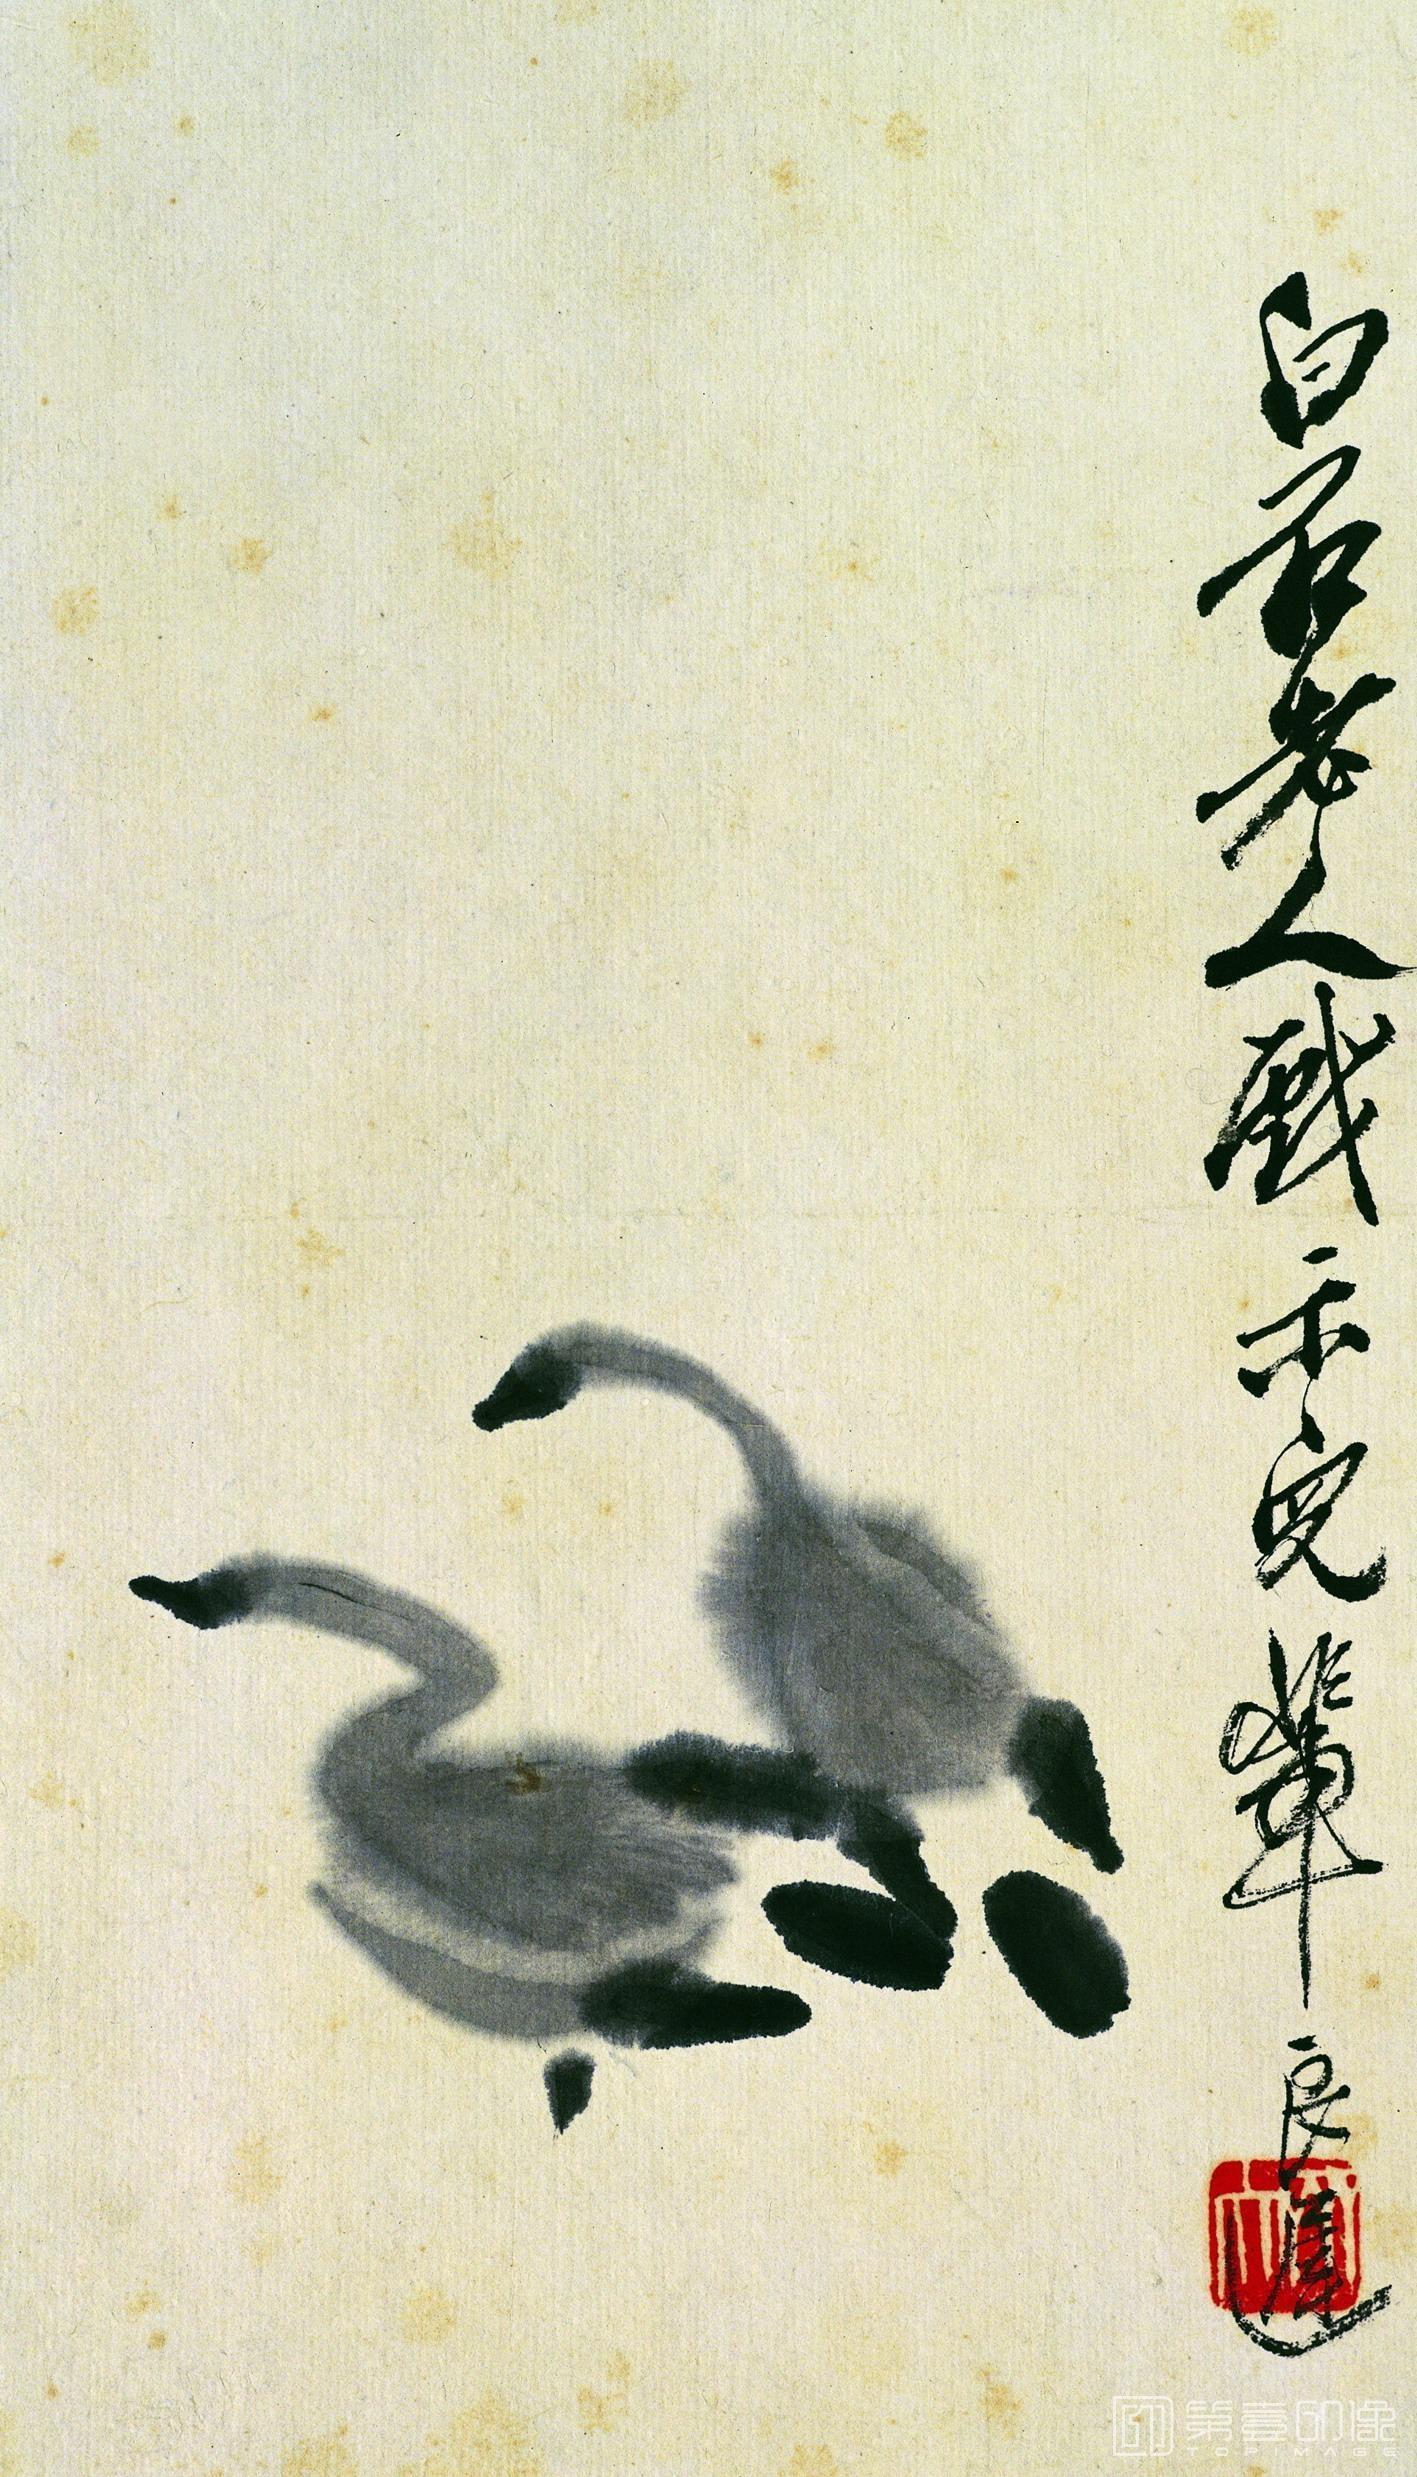 白石老人戲示兒輩良遲
第壹印像
TOPIMAGE